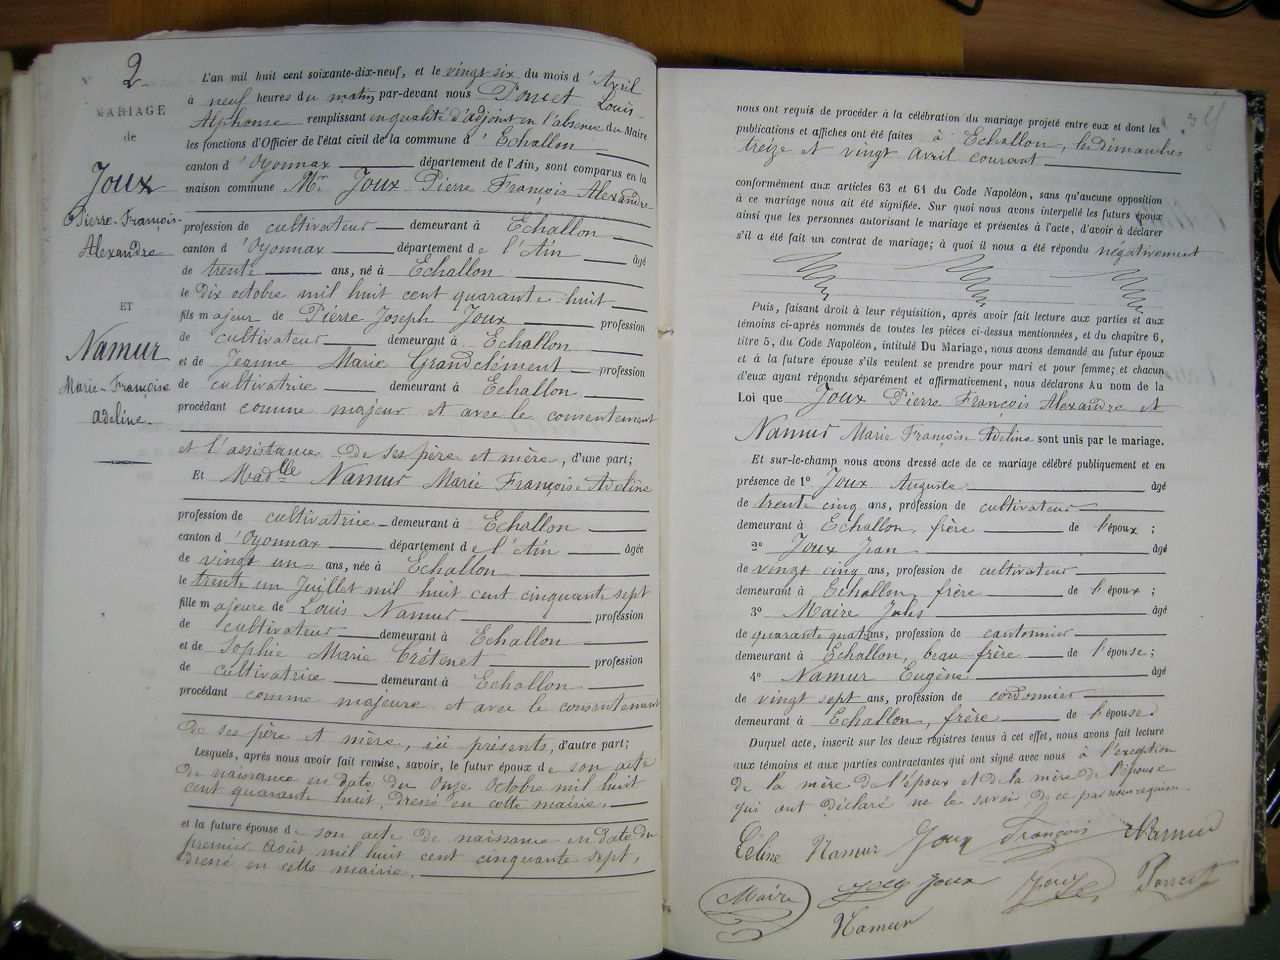 2
MARIAGE
de
Joux
Pierre-François-
Alexandre
ET
Namur
Marie-Françoise
Adeline.
L'an mil huit cent soixante-dix-neuf, et le vingt six du mois d'Avril
à neuf heures du matin par-devant nous Poncet Louis-
Alphonse remplissant en qualité d'adjoint en l'absence du Maire
les fonctions d'Officier de l'état civil de la commune d'Echallon
canton d'Oyonnax département de l'Ain, sont comparus en la
maison commune Mr Joux Pierre François Alexandre
profession de cultivateur demeurant à Echallon
canton d'Oyonnax département de l'Ain âgé
de trente ans, né à Echallon
le dix octobre mil huit cent quarante huit
fils majeur de Pierre Joseph Joux profession
de cultivateur demeurant à Echallon
et de Jeanne Marie Grandclément profession
de cultivatrice demeurant à Echallon
procédant comme majeur et avec le consentement
et l'assistance de ses père et mère, d'une part;
Et Madelle Namur Marie Françoise Adeline
profession de cultivatrice demeurant à Echallon
canton d'Oyonnax département de l'Ain âgée
de vingt un ans, née à Echallon
le trente un Juillet mil huit cent cinquante sept
fille majeure de Louis Namur profession
de cultivateur demeurant à Echallon
et de Sophie Marie Crétenet profession
de cultivatrice demeurant à Echallon
procédant comme majeure et avec le consentement
de ses père et mère, ici présents, d'autre part;
Lesquels, après nous avoir fait remise, savoir, le futur époux de son acte
de naissance en date du Onze Octobre mil huit
cent quarante huit, dressé en cette mairie.
et la future épouse de son acte de naissance en date du
premier Août mil huit cent cinquante sept,
dressé en cette mairie.
nous ont requis de procéder à la célébration du mariage projeté entre eux et dont les
publications et affiches ont été faites à Echallon, les dimanches
treize et vingt Avril courant
conformément aux articles 63 et 61 du Code Napoléon, sans qu'aucune opposition
à ce mariage nous ait été signifiée. Sur quoi nous avons interpellé les futurs époux
ainsi que les personnes autorisant le mariage et présentes à l'acte, d'avoir à déclarer
s'il a été fait un contrat de mariage; à quoi il nous a été répondu négativement
Puis, faisant droit à leur réquisition, après avoir fait lecture aux parties et aux
témoins ci-après nommés de toutes les pièces ci-dessus mentionnées, et du chapitre 6,
titre 5, du Code Napoléon, intitulé Du Mariage, nous avons demandé au futur époux
et à la future épouse s'ils veulent se prendre pour mari et pour femme; et chacun
d'eux ayant répondu séparément et affirmativement, nous déclarons Au nom de la
Loi que Joux Pierre François Alexandre et
Namur Marie Françoise Adeline sont unis par le mariage.
Et sur-le-champ nous avons dressé acte de ce mariage célébré publiquement et en
présence de 1° Joux Auguste âgé
de trente cinq ans, profession de cultivateur
demeurant à Echallon, frère de l'époux;
2° Joux Jean âgé
de vingt cinq ans, profession de cultivateur
demeurant à Echallon, frère de l'époux;
3° Maire Jules âgé
de quarante quatre ans, profession de cantonnier
demeurant à Echallon, beau-frère de l'épouse;
4° Namur Eugène âgé
de vingt sept ans, profession de cordonnier
demeurant à Echallon, frère de l'épouse.
Duquel acte, inscrit sur les deux registres tenus à cet effet, nous avons fait lecture
aux témoins et aux parties contractantes qui ont signé avec nous à l'exception
de la mère de l'époux et de la mère de l'épouse
qui ont déclaré ne le savoir, de ce par nous requises.
Céline Namur Joux François Namur
Maire Joux Joux Poncet
Namur